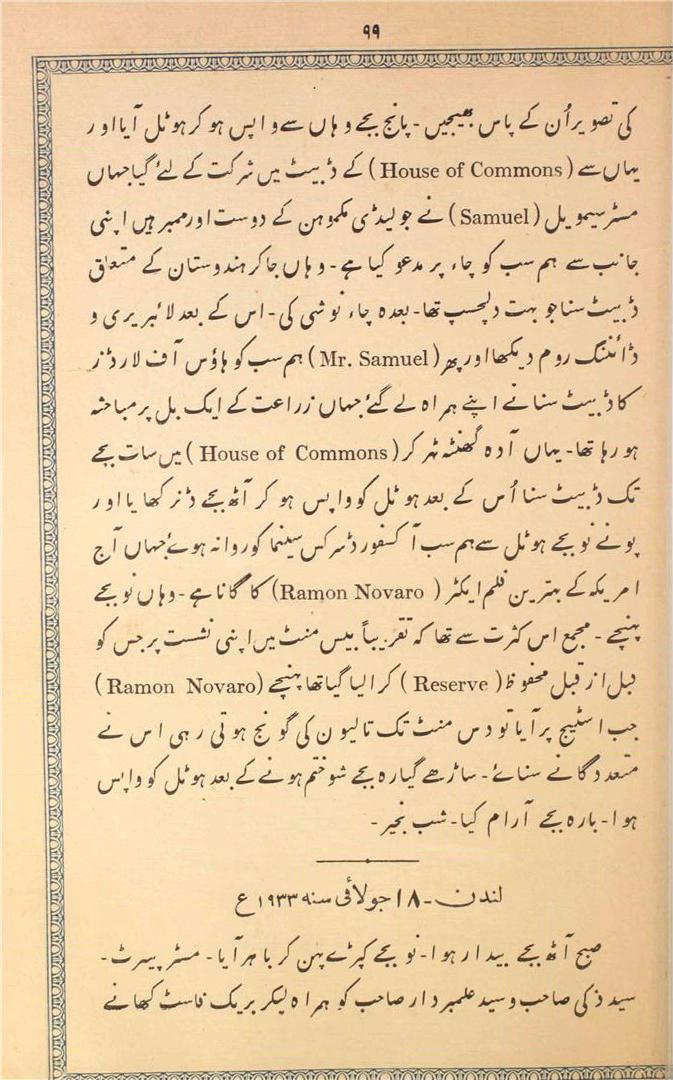 ۹۹
کی تصویر اُن کے پاس بھیجیں - پانچ بجے وہاں سے واپس ہو کر ہوٹل آیا اور
یہاں سے ( House of Commons ) کے ڈبیٹ میں شرکت کے لئے گیا جہاں
مسٹر سیمویل ( Samuel ) نے جو لیڈی مکموہن کے دوست اور ممبر ہیں اپنی
جانب سے ہم سب کو چاء پر مدعو کیا ہے - وہاں جا کر ہندوستان کے متعلق
ڈبیٹ سنا جو بہت دلچسپ تھا - بعدہ چاء نوشی کی - اس کے بعد لائبریری و
ڈائننگ روم دیکھا اور پھر ( Mr. Samuel ) ہم سب کو ہاؤس آف لارڈز
کا ڈبیٹ سنانے اپنے ہمراہ لے گئے جہاں زراعت کے ایک بل پر مباحثہ
ہو رہا تھا - یہاں آدہ گھنٹہ ٹہر کر ( House of Commons ) میں سات بجے
تک ڈبیٹ سنا اُس کے بعد ہوٹل کو واپس ہو کر آٹھ بجے ڈنر کھایا اور
پونے نو بجے ہوٹل سے ہم سب آکسفورڈ سرکس سینما کو روانہ ہوئے جہاں آج
امریکہ کے بہترین فلم ایکٹر ( Ramon Novaro ) کا گانا ہے - وہاں نو بجے
پہنچے - مجمع اس کثرت سے تھا کہ تقریباً بیس منٹ میں اپنی نشست پر جس کو
قبل از قبل محفوظ ( Reserve ) کرا لیا گیا تھا پہنچے ( Ramon Novaro )
جب اسٹیج پر آیا تو دس منٹ تک تالیون کی گونج ہوتی رہی اس نے
متعدد گانے سنائے - ساڑھے گیارہ بجے شو ختم ہونے کے بعد ہوٹل کو واپس
ہوا - بارہ بجے آرام کیا - شب بخیر -
لندن - ۱۸ جولائی سنہ ۱۹۳۳ ع
صبح آٹھ بجے بیدار ہوا - نو بجے کپڑے پہن کر باہر آیا - مسٹر پیرٹ -
سید ذکی صاحب و سید علمبردار صاحب کو ہمراہ لیکر بریک فاسٹ کھانے